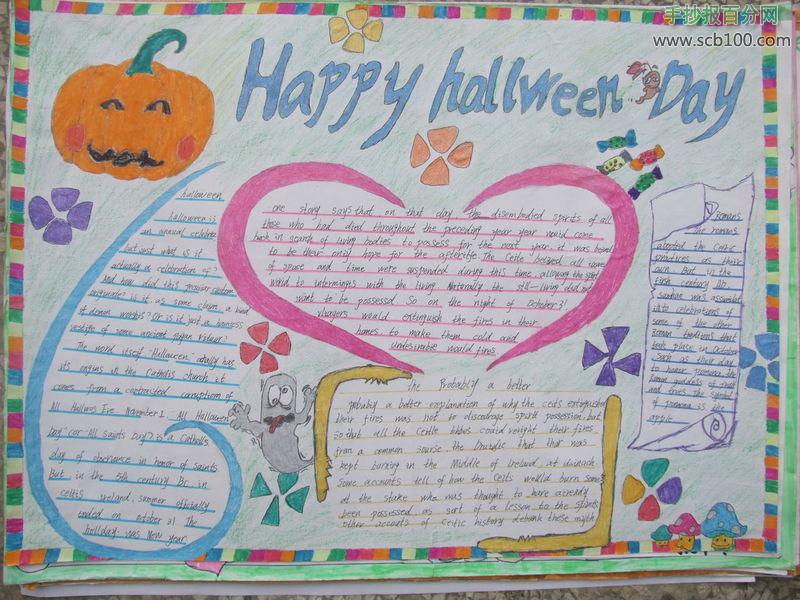 手抄报百分网
www.scb100.com
Happy hallween Day
halloween
halloween is
an annual celebrate
but just what is it
actually a celebration of?
And how did this peculiar custom
originate? Is it as some claim, a kind
of demon worship? Or is it just a harmless
vestige of some ancient pagan ritual?
The word itself "Halloween" actually has
its origins in the Catholic church. it
comes from a contracted corruption of
All Hallows Eve. November 1. "All Halloween
Day" (or "All Saints Day") is a Catholic
day of observance in honor of saints
But in the 5th century Bc in
celtic ireland, summer officially
ended on october 31. The
holiday was New year.
one story says that on that day the disembodied spirits of all
those who had died throughout the preceding year year would come
back in search of living bodies to possess for the next year. it was
to be their only hope for the afterlife. The Celts believed all laws
of space and time were suspended during this time, allowing the spirit
world to intermingle with the living. Naturally the still-living did not
want to be possessed. So on the night of October 31
villagers would extinguish the fires in their
homes, to make them cold and
undesirable would fires.
the Probably a better
probably a better explanation of why the celts extinguished
their fires was not to discourage spirit possession. but
so that all the Celtic tribes could relight their fires
from a common source the Druidic that that was
kept burning in the Middle of Ireland, at
Some accounts tell of how the Celts would burn some
at the stake who was thought to have already
been possessed as sort of a lesson to the spirits
other accounts of Celtic history debunk these myth
Romans
The Romans
adopted the Celtic
practices as their
own. But in the
first century AD
Samhan was assimilated
into celebrations of
some of the other
Roman traditions that
took place in October
such as their day
to honor pomona the
Roman goddess of fruit
and trees. The symbol
of pomona is the
apple